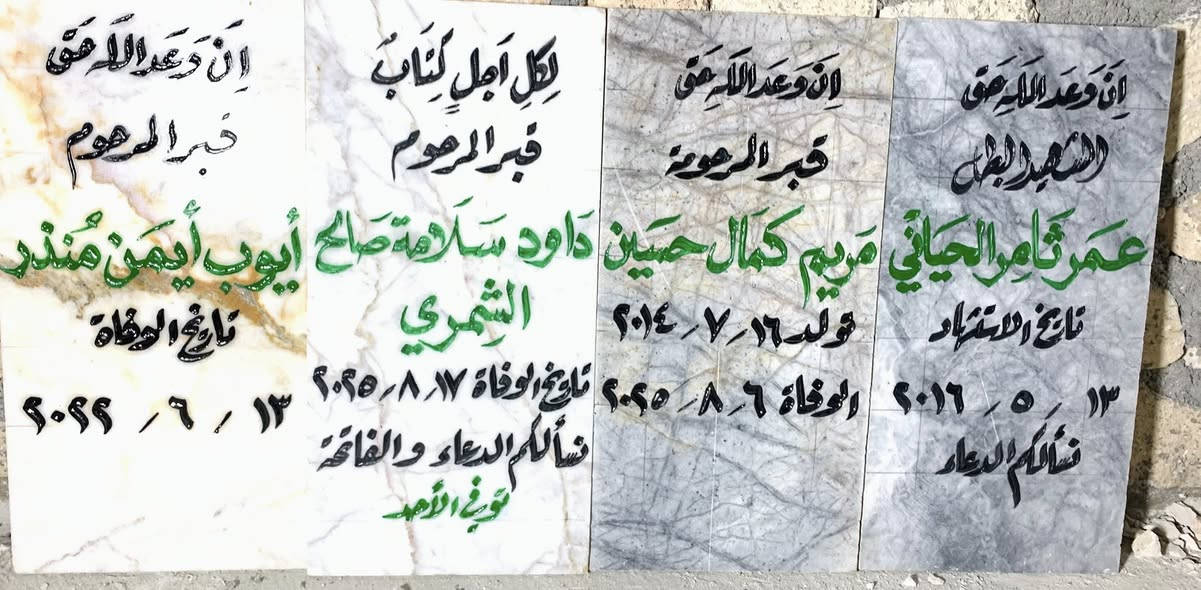 اِنَّ وَعَدَ اللَّه حَقٌ
الشهيد البطل
عمَر ثَامِر الحيَاني
تاريخ الاستشهاد
١٣ / ٥ / ٢٠١٦
نسألكم الدعاء
اِنَّ وَعَدَ اللَّهِ حَقٌ
قبر المرحومة
مَريم كمَال حسَين
تولد ١٦ / ٧ / ٢٠١٤
الوفاة ٦ / ٨ / ٢٠٢٥
لِكلِ اَجلٍ كِتَابُ
قبر المرحوم
دَاود سَلَامة صَالح
الشِمري
تاريخ الوفاة ١٧ / ٨ / ٢٠٢٥
نسألكم الدعاء والفاتحة
توفي الأحد
اِنَّ وَعَدَ اللَّه حَقٌ
قبر المرحوم
أيوب أيمَن مُنذر
تاريخ الوفاة
١٣ / ٦ / ٢٠٢٢